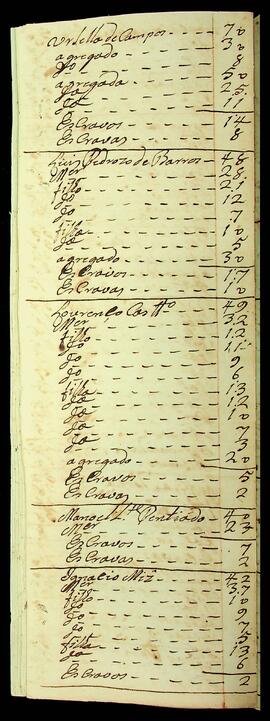 Ursulla de Campos - - - 70
agregado - - - 30
Jo - - - 8
agregada - - - 50
Ja - - - 25
Ja - - - 11
Escravos - - - 14
Escravas - - - 8
Luis Pedrozo de Barros - 48
Mer - - - 28
fillo - - - 21
Jo - - - 12
Jo - - - 7
filla - - - 10
Ja - - - 5
agregado - - - 30
Escravos - - - 17
Escravas - - - 10
Lourenço Castto - - - 49
Mer - - - 32
fillo - - - 12
Jo - - - 11
Jo - - - 9
Jo - - - 6
filla - - - 13
Ja - - - 12
Ja - - - 10
Ja - - - 7
Ja - - - 3
agregado - - - 20
Escravos - - - 5
Escravas - - - 2
Manoel Pentiado - - - 40
Mer - - - 23
Escravos - - - 7
Escravas - - - 2
Ignacio Miz - - - 42
Mer - - - 37
fillo - - - 10
Jo - - - 9
Jo - - - 7
Jo - - - 5
filla - - - 13
Ja - - - 6
Escravos - - - 2